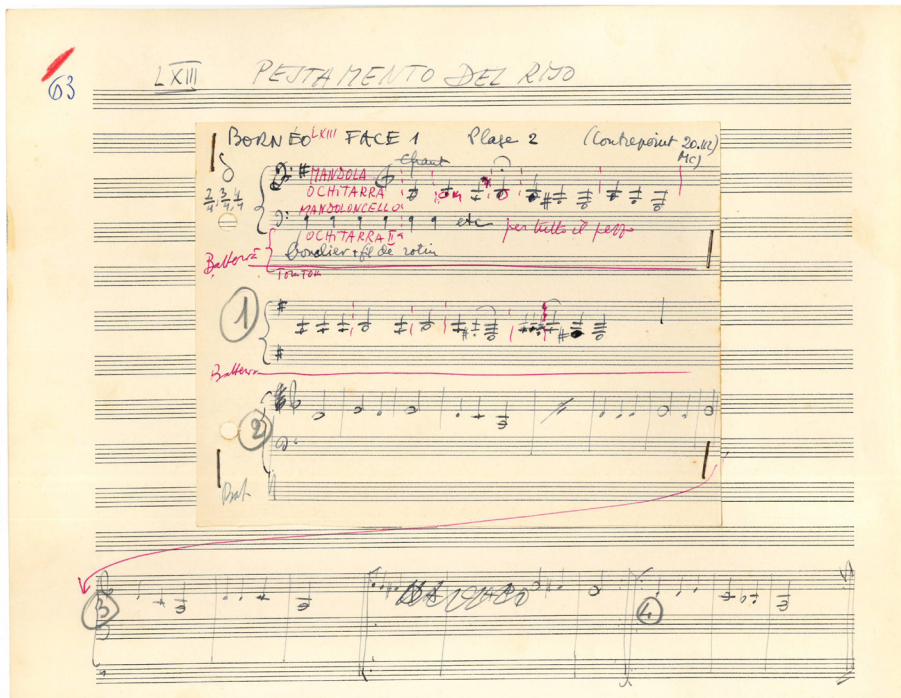 63
LXIII PESTAMENTO DEL RISO
BORNÉO LXIII FACE 1 Plage 2 (Contrepoint 20.112)
MC)
Chant
MANDOLA
O CHITARRA
2/4, 3/4, 4/4
MANDOLONCELLO
etc per tutto il pezzo
O CHITARRA IIª
Batteria
Bouclier + fil de rotin
TOM TOM
1
Batteria
2
Bat.
3
4